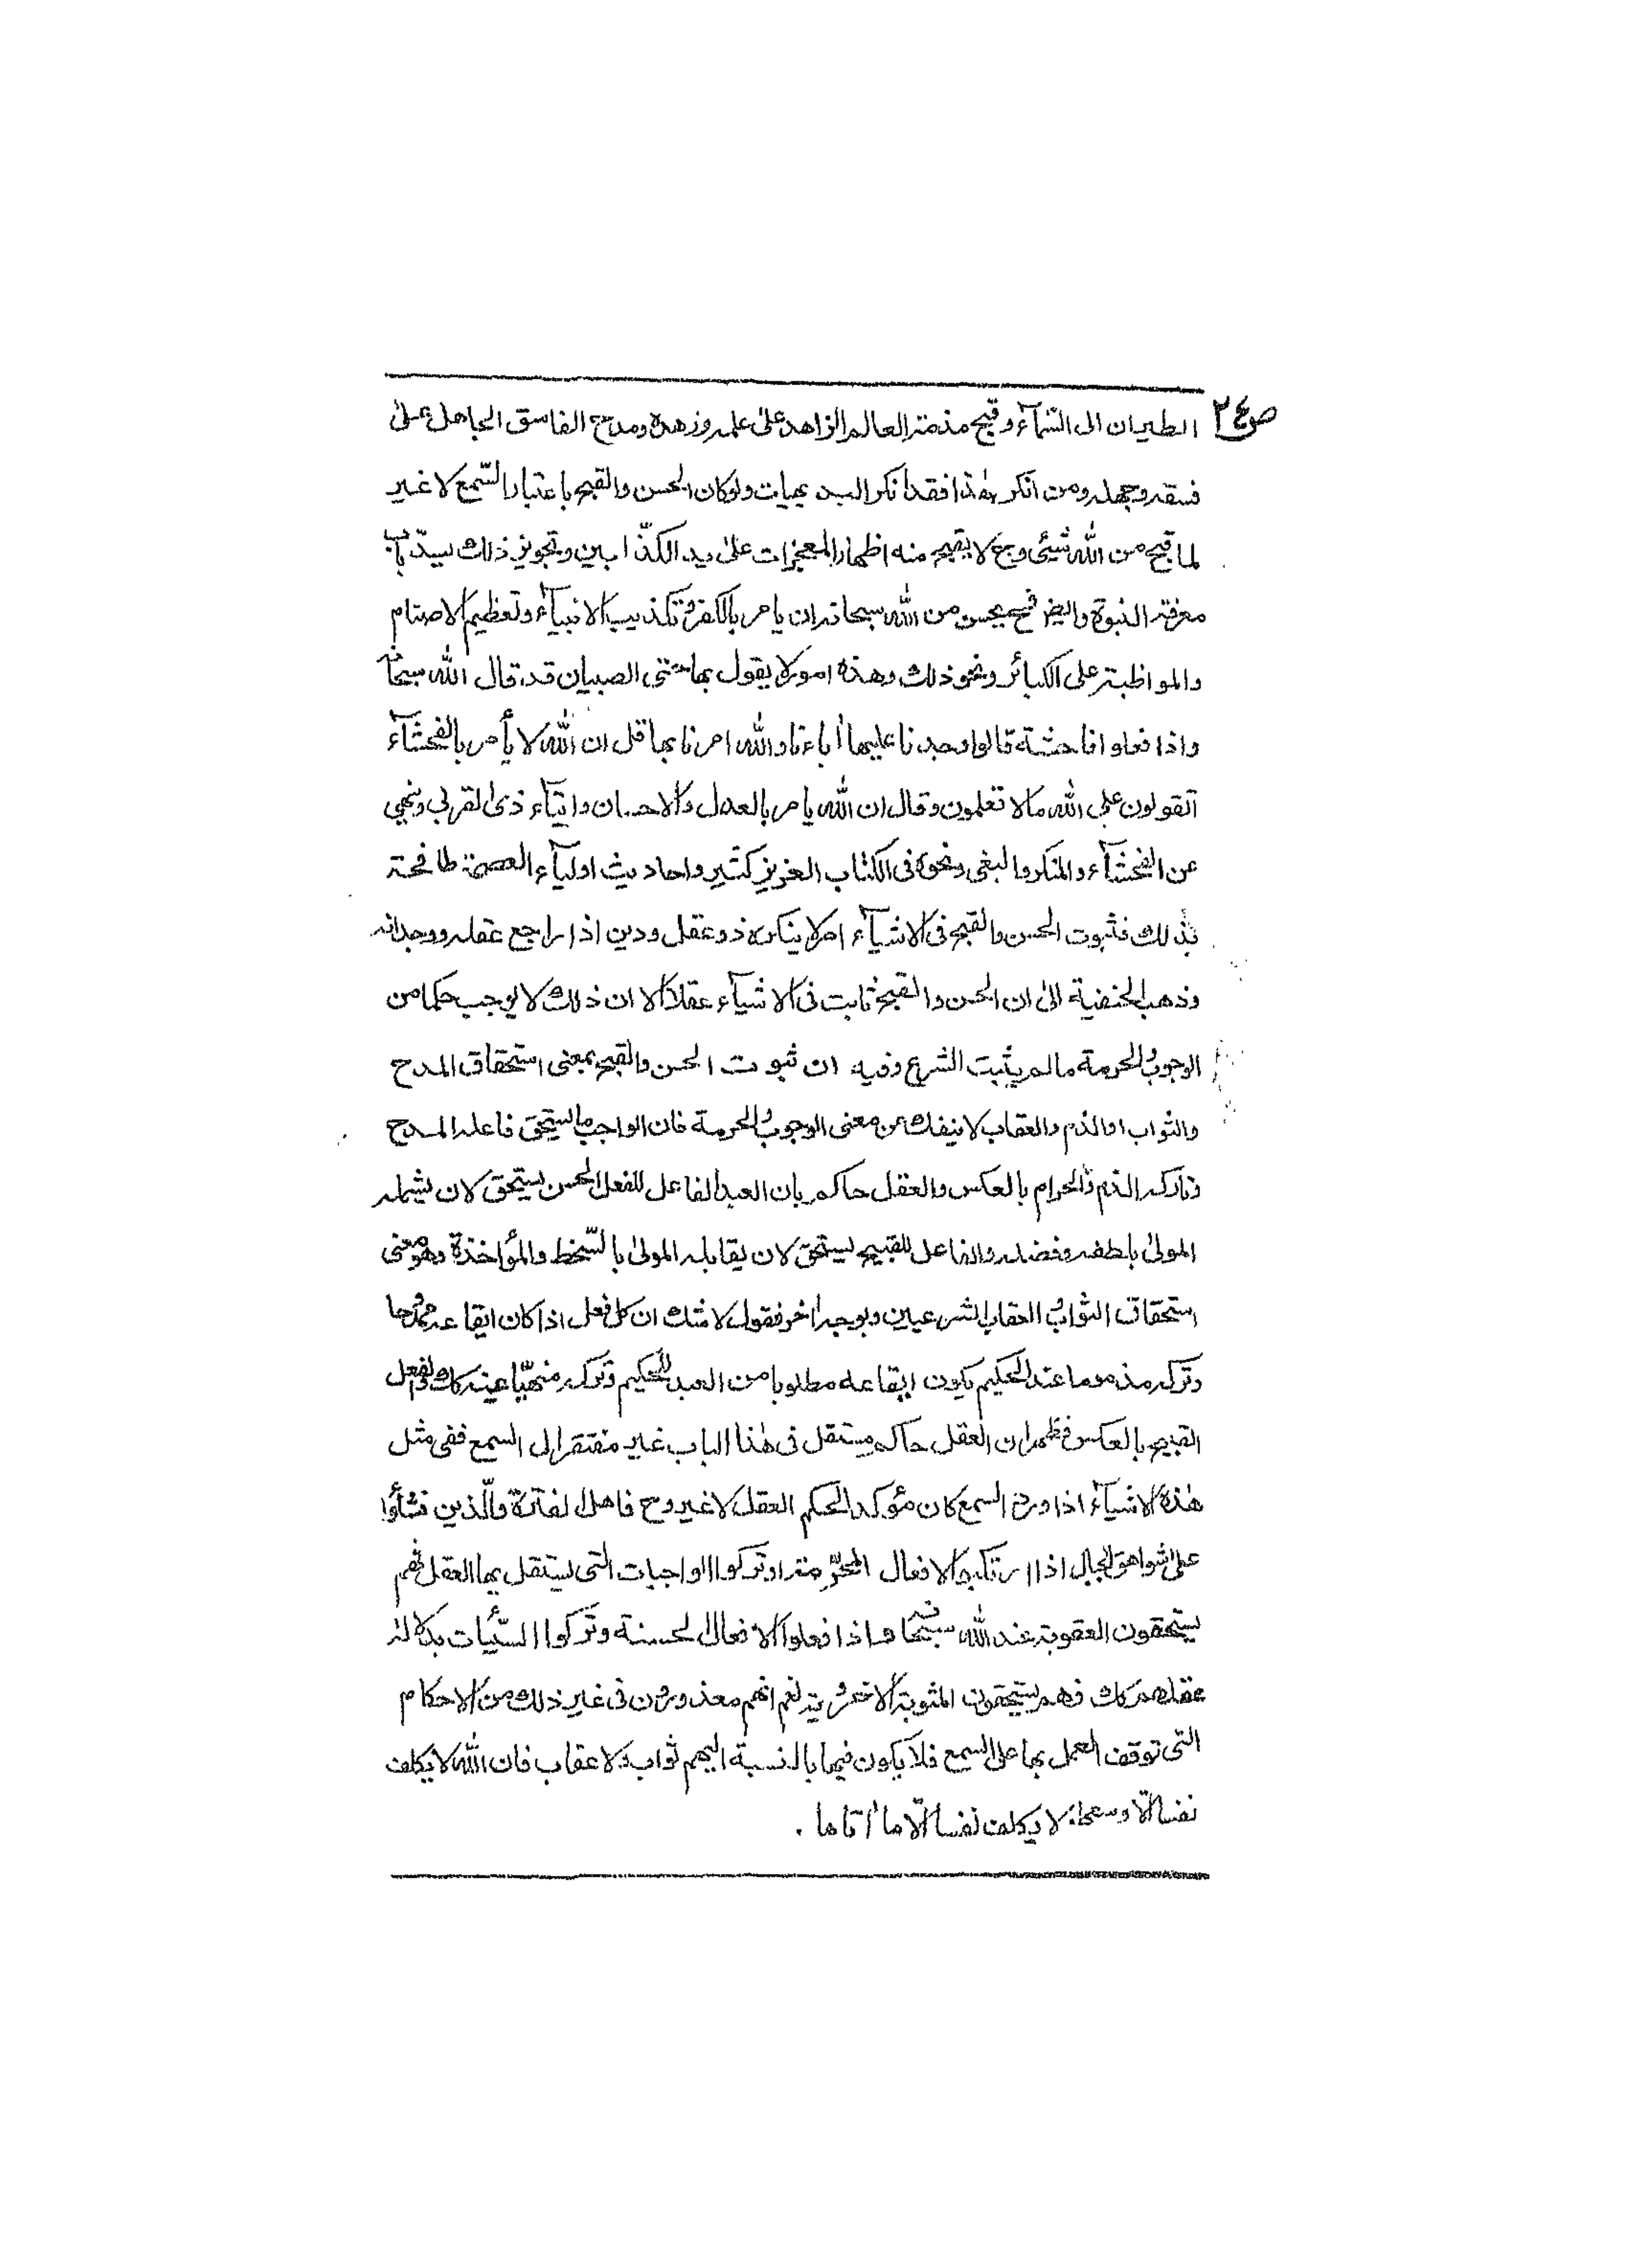 ص٢٤
الطيران الى السّمآء وقبح مذمة العالم الزاهد على علمه وزهده ومدح الفاسق الجاهل على
فسقه وجهله ومن انكر هٰذا فقد انكر البديهيات ولو كان الحسن والقبح باعتبار السّمع لا غير
لما قبح من اللّٰه شيئى وح لا يقبح منه اظهار المعجزات على يد الكذّابين وتجويز ذلك يسدّ باب
معرفة النبوة وايض فح يحسن من اللّٰه سبحانه ان يامر بالكفر وتكذيب الانبيآء وتعظيم الاصنام
والمواظبة على الكبائر ونحو ذلك وهذه امور لا يقول بها حتى الصبيان قد قال اللّٰه سبحانه
واذا فعلوا فاحشة قالوا وجدنا عليها اٰباءنا واللّٰه امرنا بها قل ان اللّٰه لا يأمر بالفحشآء
اتقولون على اللّٰه ما لا تعلمون وقال ان اللّٰه يامر بالعدل والاحسان وايتآء ذى القربى وينهي
عن الفحشآء والمنكر والبغى ونحوه فى الكتاب العزيز كثير واحاديث اوليآء العصمة طافحة
بذلك فثبوت الحسن والقبح فى الاشيآء امر لا ينكره ذو عقل ودين اذا راجع عقله ووجدانه
وذهب الحنفية الىٰ ان الحسن والقبح ثابت فى الاشيآء عقلا الا ان ذلك لا يوجب حكما من
الوجوب والحرمة ما لم يثبت الشرع وفيه ان ثبوت الحسن والقبح بمعنى استحقاق المدح
والثواب او الذم والعقاب لا ينفك من معنى الوجوب والحرمة فان الواجب ما يستحق فاعله المدح
وتاركه الذم والحرام بالعكس والعقل حاكم بان العبد الفاعل للفعل الحسن يستحق لان يشمله
المولىٰ بلطفه وفضله والفاعل للقبيح يستحق لان يقابله المولىٰ بالسّخط والمؤاخذة وهو معنى
استحقاق الثواب والعقاب الشرعيين وبوجه اٰخر فنقول لا شك ان كل فعل اذا كان ايقاعه ممدوحا
وتركه مذموما عند الحكيم يكون ايقاعه مطلوبا من العبد للحكيم وتركه منهيّا عنه كك وفى الفعل
القبيح بالعكس فظهر ان العقل حاكم مستقل فى هٰذا الباب غير مفتقر الى السمع ففى مثل
هٰذه الاشيآء اذا ورد السمع كان مؤكدا لحكم العقل لا غير وح فاهل الفترة والّذين نشأوا
على شواهق الجبال اذا ارتكبوا الافعال المحرّمة او تركوا الواجبات التى يستقل بها العقل فهم
يستحقون العقوبة عند اللّٰه سبحانه واذا فعلوا الافعال الحسنة وتركوا السّيّأت بدلالة
عقلهم كك فهم يستحقون المثوبة الاخروية نعم انهم معذورون فى غير ذلك من الاحكام
التى توقف العمل بها على السمع فلا يكون فيها بالنسبة اليهم ثواب ولا عقاب فان اللّٰه لا يكلف
نفسا الّا وسعها؛ لا يكلف نفسا الّا ما اٰتاها .